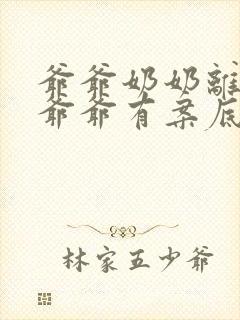 爺爺奶奶離
爺爺有案底
林家五少爺